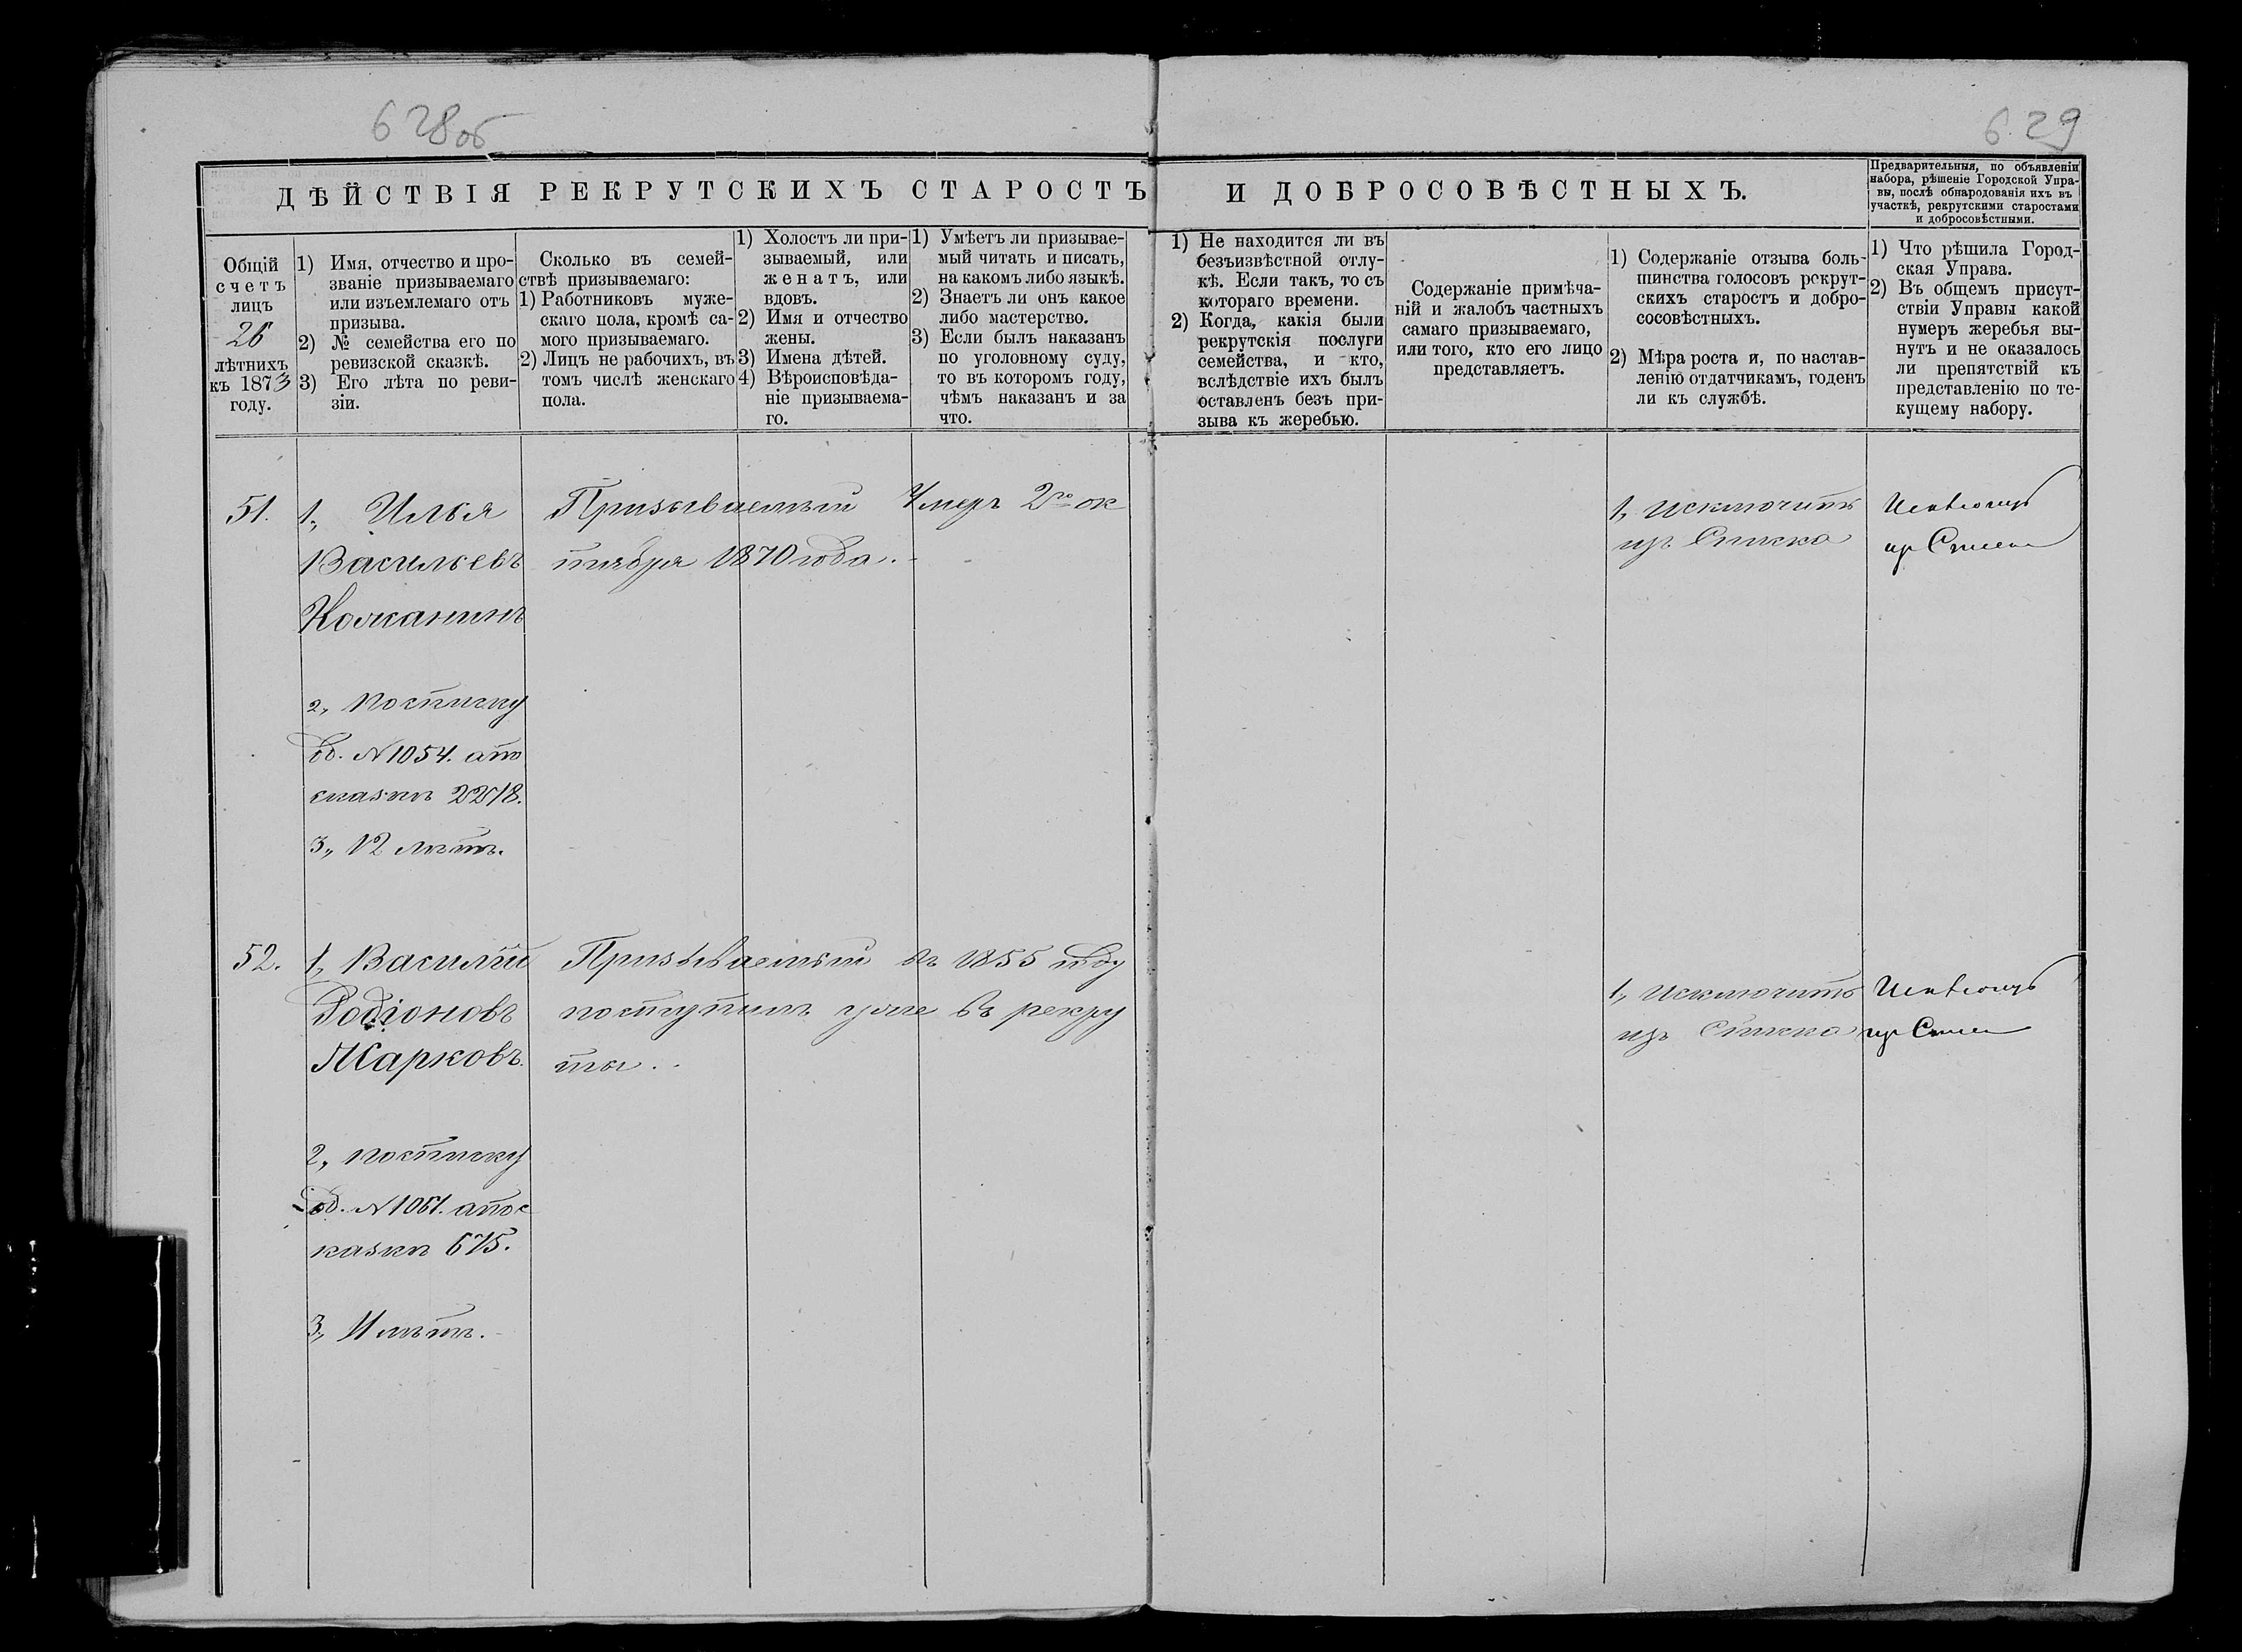 628об
629
ДѢЙСТВІЯ РЕКРУТСКИХЪ СТАРОСТЪ И ДОБРОСОВѢСТНЫХЪ.
Предварительныя, по объявленіи
набора, рѣшеніе Городской Упра-
вы, послѣ обнародованія ихъ въ
участкѣ, рекрутскими старостами
и добросовѣстными.
Общій
счетъ
лицъ
26
лѣтнихъ
къ 1873
году.
1) Имя, отчество и про-
званіе призываемаго
или изъемлемаго отъ
призыва.
2) № семейства его по
ревизской сказкѣ.
3) Его лѣта по реви-
зіи.
Сколько въ семей-
ствѣ призываемаго:
1) Работниковъ муже-
скаго пола, кромѣ са-
мого призываемаго.
2) Лицъ не рабочихъ, въ
томъ числѣ женскаго
пола.
1) Холостъ ли при-
зываемый, или
женатъ, или
вдовъ.
2) Имя и отчество
жены.
3) Имена дѣтей.
4) Вѣроисповѣда-
ніе призываема-
го.
1) Умѣетъ ли призывае-
мый читать и писать,
на какомъ либо языкѣ.
2) Знаетъ ли онъ какое
либо мастерство.
3) Если былъ наказанъ
по уголовному суду,
то въ которомъ году,
чѣмъ наказанъ и за
что.
1) Не находится ли въ
безъизвѣстной отлу-
кѣ. Если такъ, то съ
котораго времени.
2) Когда, какія были
рекрутскія послуги
семейства, и кто,
вслѣдствіе ихъ былъ
оставленъ безъ при-
зыва къ жеребью.
Содержаніе примѣча-
ній и жалобъ частныхъ
самаго призываемаго,
или того, кто его лицо
представляетъ.
1) Содержаніе отзыва боль-
шинства голосовъ рекрут-
скихъ старостъ и добро-
сосовѣстныхъ.
2) Мѣра роста и, по настав-
ленію отдатчикамъ, годенъ
ли къ службѣ.
1) Что рѣшила Город-
ская Управа.
2) Въ общемъ присут-
ствіи Управы какой
нумеръ жеребья вы-
нутъ и не оказалось
ли препятствій къ
представленію по те-
кущему набору.
51.
1, Илья
Васильевъ
2, по списку
об. №1054. а по
сказкѣ 2218.
3, 12 лѣтъ.
Призываемый Умеръ 2го ок
тября 1870 года.
1, Исключить
изъ Списка
52.
1, Василій
Родіоновъ
Жарковъ.
2, по списку
об. №1061. а по с
казкѣ 675.
3, 11 лѣтъ.
Призываемый въ 1855 году
поступилъ уже въ рекру
ты.
1, Исключить
изъ Списка